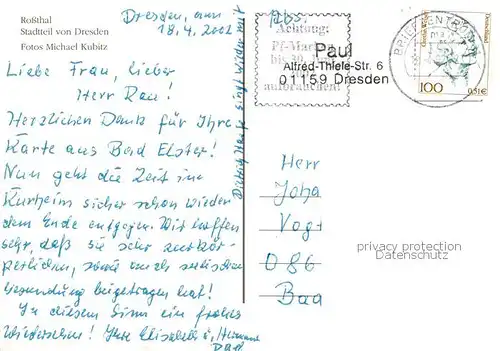 Roßthal
Stadtteil von Dresden
Fotos Michael Kubitz
Dresden, am
18.4.2002
Liebe Frau, lieber
Herr Rau!
Herzlichen Dank für Ihre
Karte aus Bad Elster!
Nun geht die Zeit im
Kurheim sicher schon wieder
dem Ende entgegen. Wir hoffen
sehr, daß sie sehr zur kör-
perlichen, sowie auch seelischen
Gesundung beigetragen hat!
In diesem Sinn ein frohes
Wiedersehen! Ihre Elisabeth u.
Abs.
Achtung:
Pf-Marken
bis 30.
aufbrauchen!
Paul
Alfred-Thiele-Str. 6
01159 Dresden
BRIEFZENTRUM
Deutschland
100
0,51€
Herr
Joha
Vogt
086
Bad
privacy protection
Datenschutz